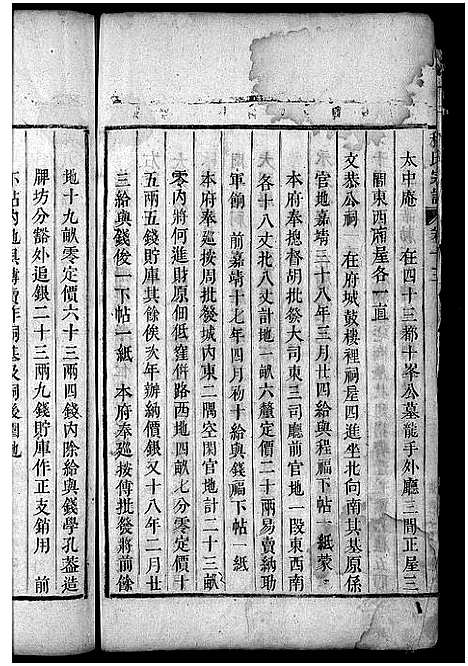 太中庵　在四十三都十峯公墓龍手外廳三間正屋三
間東西廂屋各一直
文恭公祠　在府城鼓樓裡祠屋四進坐北向南其基原係
官地嘉靖三十八年三月廿四給與程福下帖一紙蒙
本府奉總督胡批發大司東三司廳前官地一段東西南
各十八丈北八丈計地一畝六釐定價二十兩易賣納助
軍餉　前嘉靖十七年四月初十給與錢福下帖一紙
本府奉巡按周批發城內東二隅空閑官地計二十三畝
零內將何進財原佃低窪併路西地四畝七分零定價十
五兩五錢貯庫其餘俟次年辦納價銀又十八年二月廿
三給與錢俊一下帖一紙　本府奉巡按傅批發將前餘
地十九畝零定價六十三兩四錢內除給與錢學孔蓋造
牌坊分豁外追銀二十三兩九錢貯庫作正支銷用　前
氏宗譜